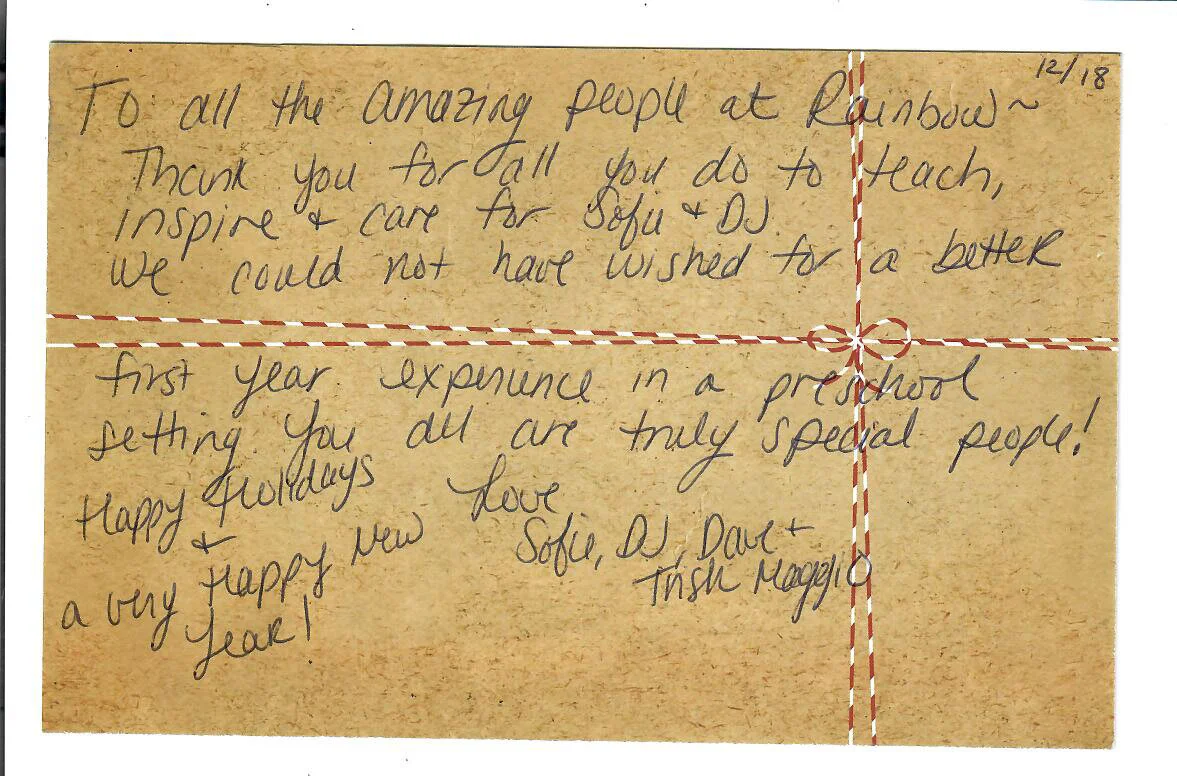 12/18
To all the amazing people at Rainbow~
Thank you for all you do to teach,
inspire + care for Sofie + DJ.
We could not have wished for a better
first year experience in a preschool
setting you all are truly special people!
Happy Holidays
+
a very Happy New
Year!
Love
Sofie, DJ, Dave +
Trish Maggio